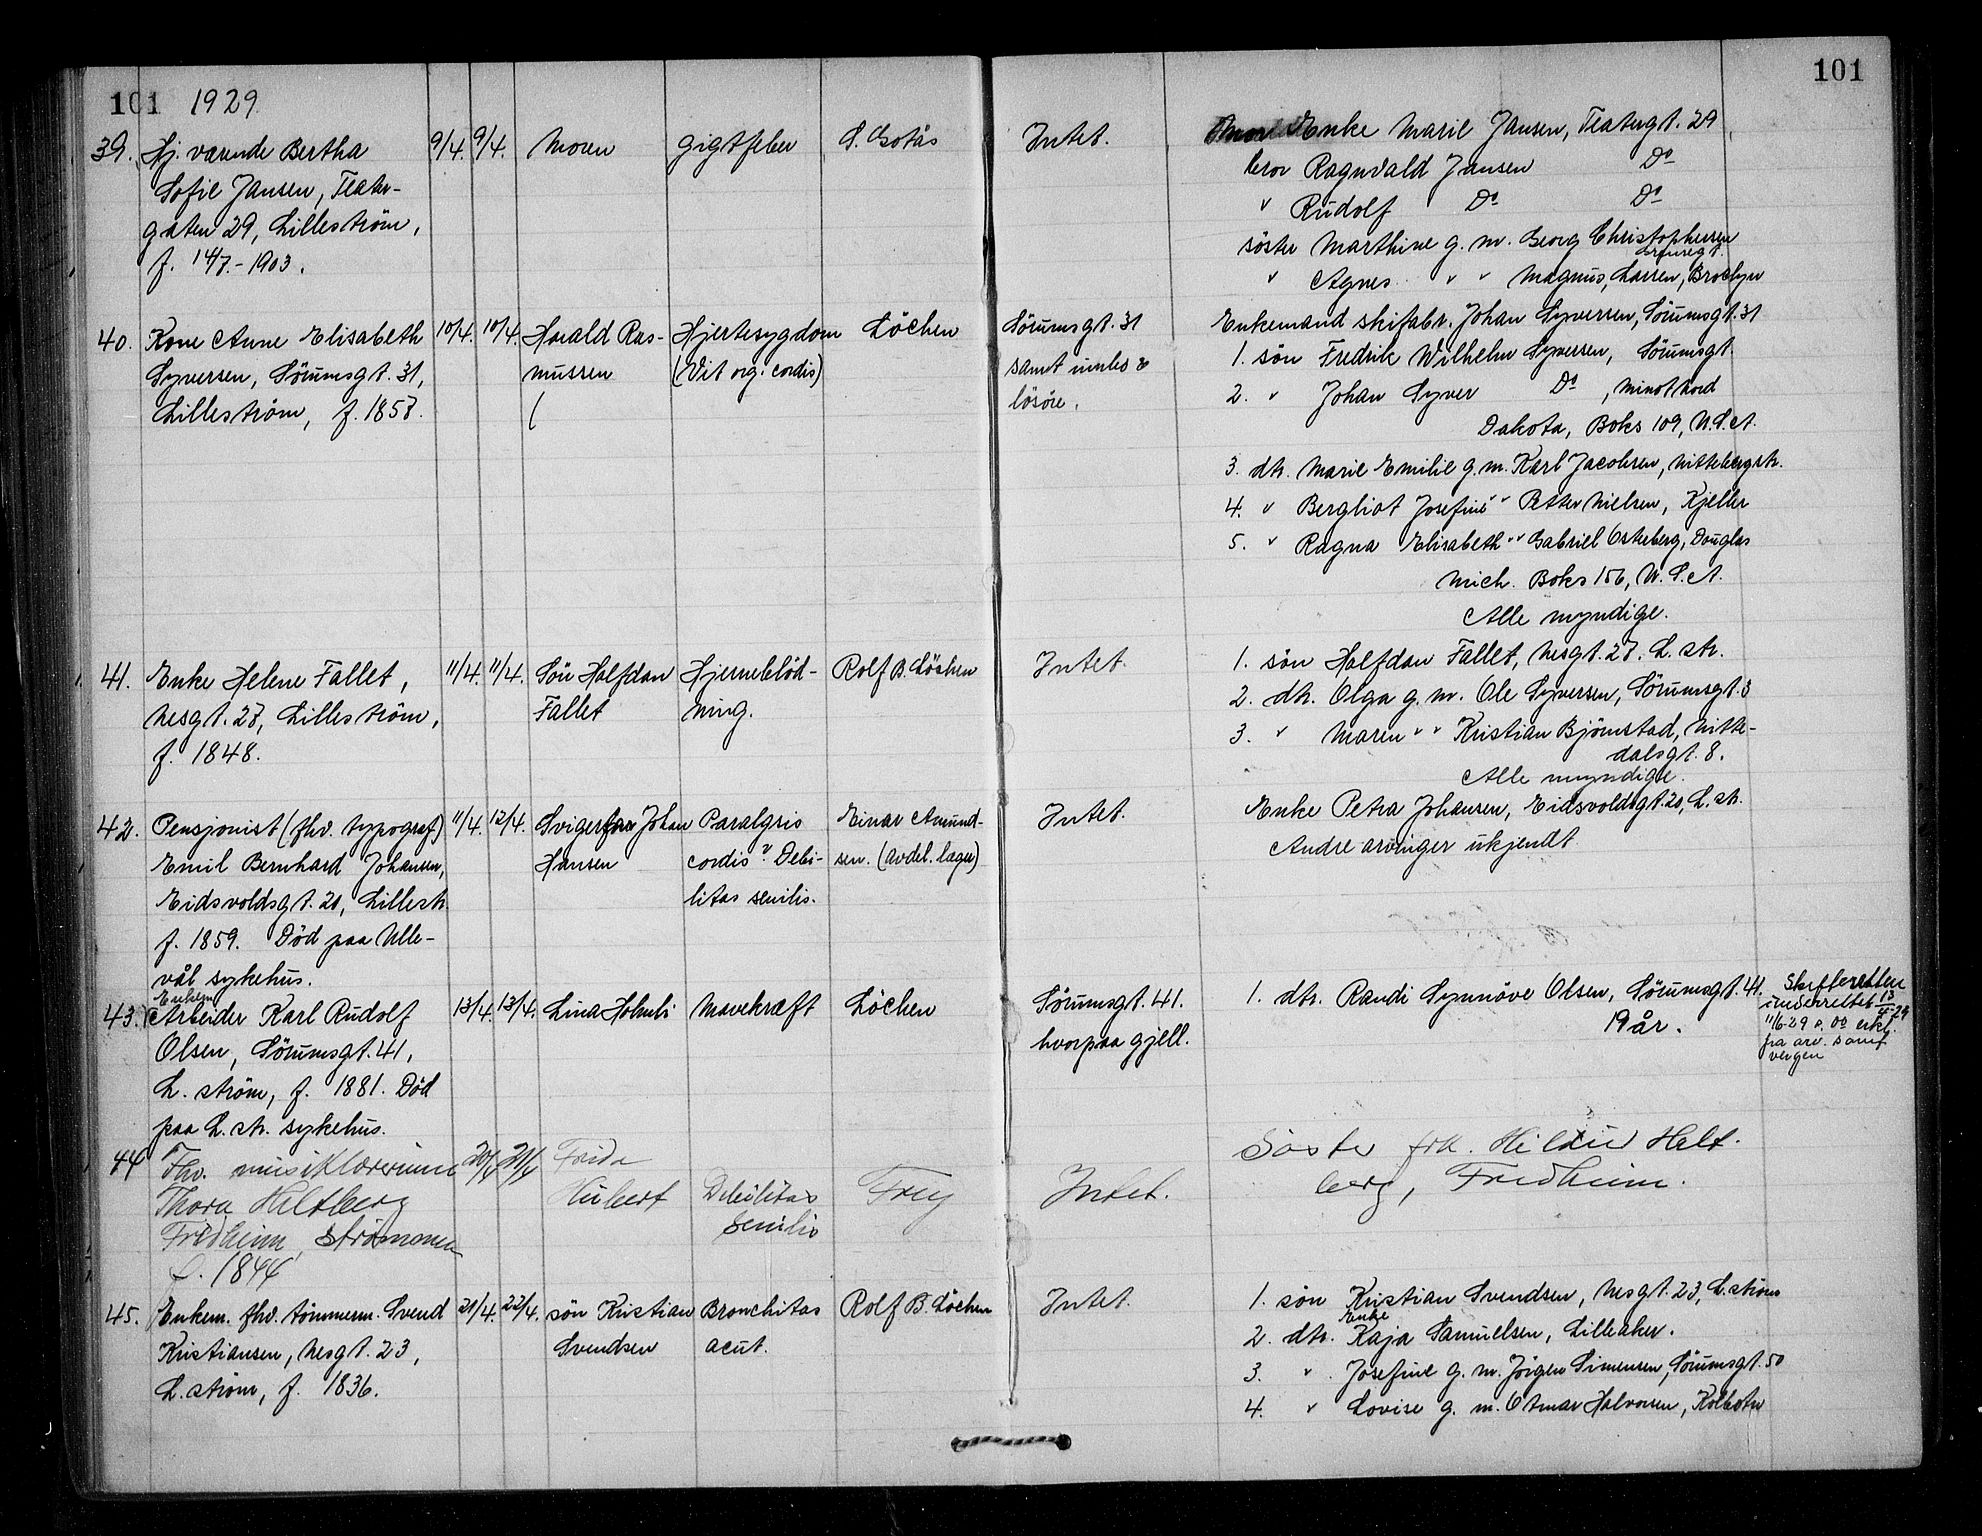 101 1929. 101
39. Hj. værende Bertha 9/4. 9/4. Moren Gigtfeber Intet. Enke Marie Jansen, Teatergt. 29
Sofie Jansen, Teater- bror Ragnvald Jansen Do
gaten 29, Lillestrøm, " Rudolf Do Do
f. 14/7.-1903. søster Marthine g. m. Georg Christophersen
" Agnes " " Magnus Larsen, Broclyn
40. Kone Anne Elisabeth 10/4. 10/4. Harald Ras- Hjertesygdom Löchen Sörumsgt. 31 Enkemand skifabr. Johan Syversen, Sörumsgt. 31
Syversen, Sörumsgt. 31, mussen (Vit org. cordis) samt innbo & 1. sön Fredrik Wilhelm Syversen, Sörumsgt.
Lilleström, f. 1857. lösöre. 2. " Johan Syver Do, Minot Nord
Dakota, Boks 109, U.S.A.
3. dtr. Marie Emilie g. m. Karl Jacobsen, Nittebergstr.
4. " Bergliot Josefine " " Petter Nielsen, Kjeller
5. " Ragna Elisabeth " " Gabriel Osterberg, Douglas
Mich. Boks 156, U.S.A.
Alle myndige.
41. Enke Helene Fallet, 11/4. 11/4. Sön Halfdan Hjerneblöd- Rolf B. Löchen Intet. 1. sön Halfdan Fallet, Nesgt. 27. L. str.
Nesgt. 27, Lilleström, Fallet ning. 2. dtr. Olga g. m. Ole Syversen, Sörumsgt. 3
f. 1848. 3. " Maren " " Kristian Björnstad, Nitte-
dalsgt. 8.
Alle myndige.
42. Pensjonist (fhv. typograf) 11/4. 12/4. Svigerfar Johan Paralysis Einar Amund- Intet. Enke Petra Johansen, Eidsvoldsgt. 20, L. str.
Emil Bernhard Johansen, Hansen cordis? Debi- sen. (avdel. læge) Andre arvinger ukjendt
Eidsvoldsgt. 20, Lillestr. litas senilis.
f. 1859. Död paa Ulle-
vål sykehus.
Enkem.
43. Arbeider Karl Rudolf 13/4. 13/4. Lina Mavekræft Löchen Sörumsgt. 41. 1. dtr. Randi Synnöve Olsen, Sörumsgt. 41. Skifteretten
Olsen, Sörumsgt. 41, hvorpaa gjell. 19 år. underrettet 13/4-29
L. ström, f. 1881. Död 11/6-29 s. Do erkl.
paa L. str. sykehus. fra arv. samt
vergen
44 Fhv. musiklærerinne 20/4 21/4 Frida Søster frk. Hilda Helt-
Thora Heltberg Hubert Debilitas Frey Intet. berg, Fredheim.
Fredheim, Strømmen senilis
f. 1844
45. Enkem. fhv. tömmerm. Svend 21/4. 22/4. sön Kristian Bronchitas Rolf B. Löchen Intet. 1. sön Kristian Svendsen, Nesgt. 23, L. ström
Kristiansen, Nesgt. 23, Svendsen acut. 2. dtr. Enke Kaja Samuelsen, Lilleaker.
L. ström, f. 1836. 3. " Josefine g. m. Jörgen Simensen, Sörumsgt. 50
4. " Lovise g. m. Otmar Halvorsen, Kolbotn